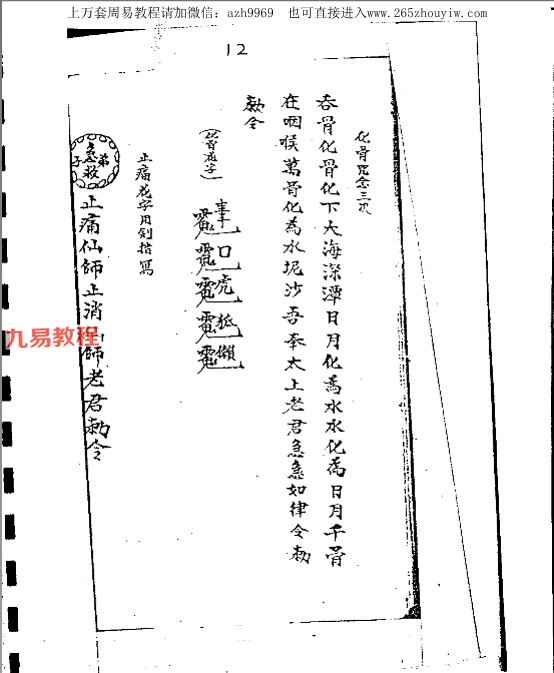 上万套周易教程请加微信：azh9969 也可直接进入www.265zhouyiw.com
12
化骨咒念三次
吞骨化骨化下大海深潭日月化為水水化為日月千骨
在咽喉萬骨化為水坭沙吾奉太上老君急急如律令勅
勅令
止痛花字用剑指寫
弟子
急救
止痛仙師止消仙師老君勅令
九易教程